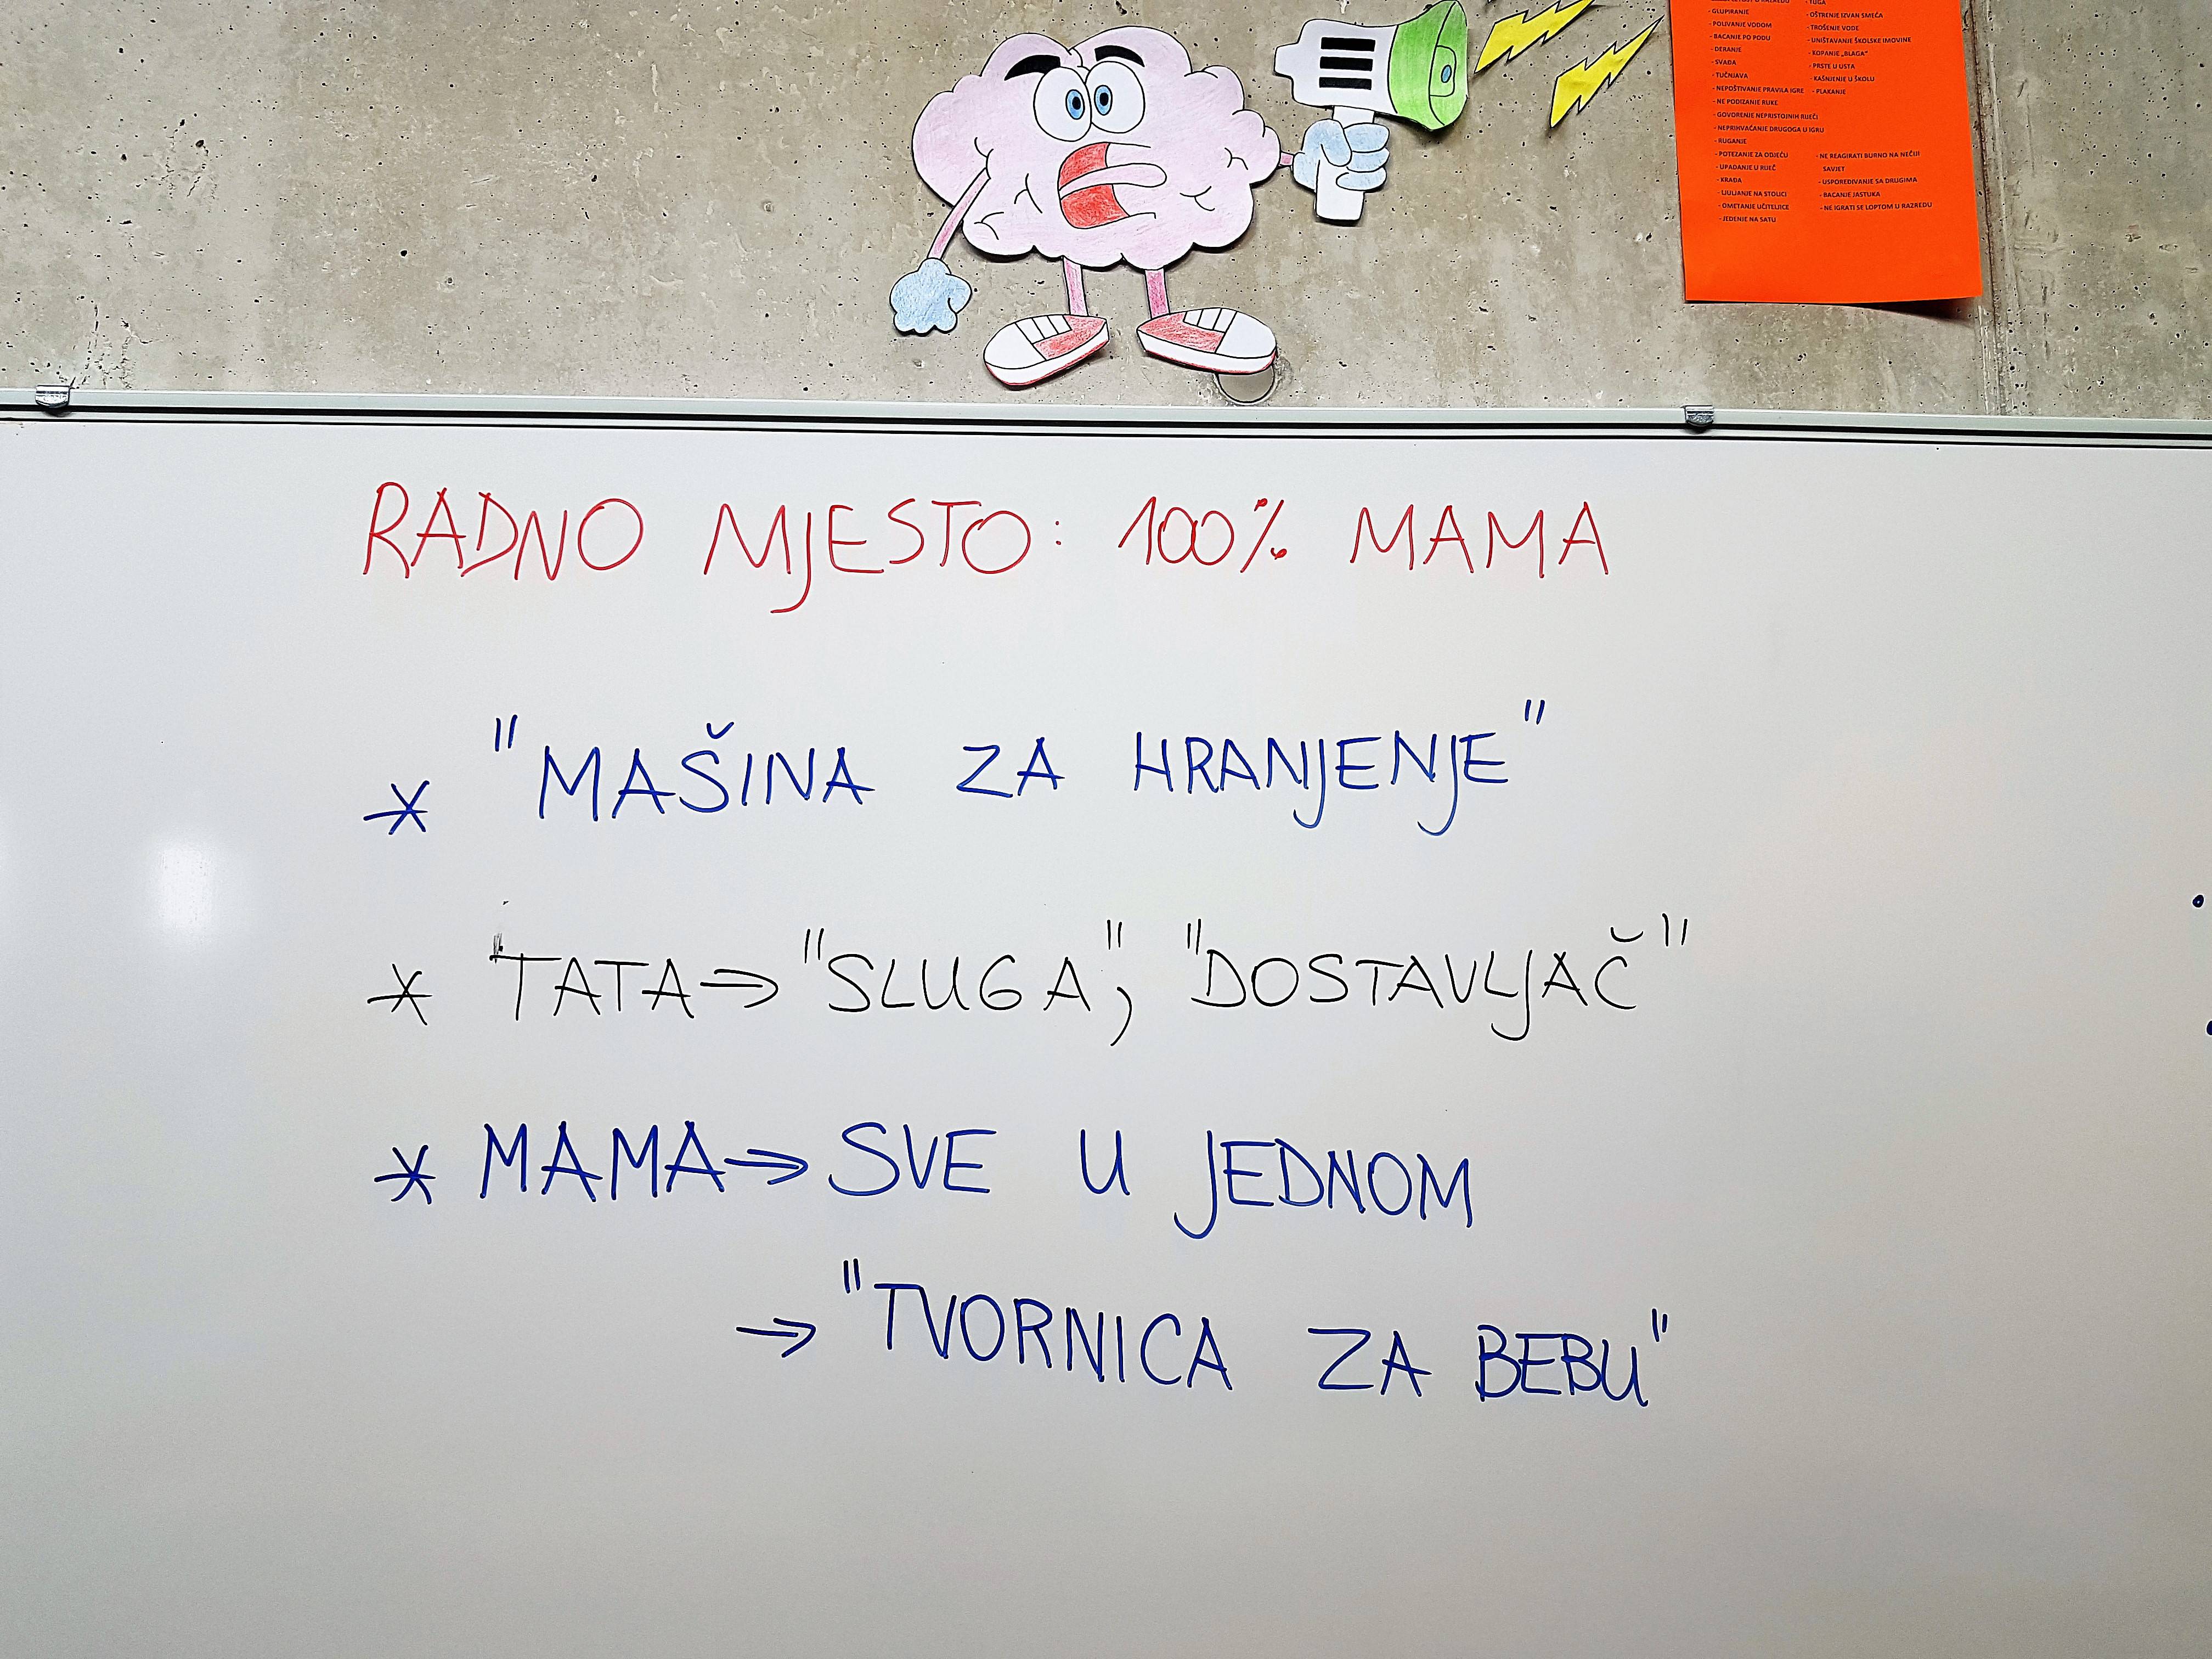 - GLUPIRANJE
- POLIVANJE VODOM
- BACANJE PO PODU
- DERANJE
- SVAĐA
- TUČNJAVA
- NEPOŠTIVANJE PRAVILA IGRE
- NE PODIZANJE RUKE
- GOVORENJE NEPRISTOJNIH RIJEČI
- NEPRIHVAĆANJE DRUGOGA U IGRU
- RUGANJE
- POTEZANJE ZA ODJEĆU
- UPADANJE U RIJEČ
- KRAĐA
- LJULJANJE NA STOLICI
- OMETANJE UČITELJICE
- JEDENJE NA SATU
- TUGA
- OŠTRENJE IZVAN SMEĆA
- TROŠENJE VODE
- UNIŠTAVANJE ŠKOLSKE IMOVINE
- KOPANJE „BLAGA"
- PRSTE U USTA
- KAŠNJENJE U ŠKOLU
- PLAKANJE
- NE REAGIRATI BURNO NA NEČIJI
SAVJET
- USPOREĐIVANJE SA DRUGIMA
- BACANJE JASTUKA
- NE IGRATI SE LOPTOM U RAZREDU
RADNO MJESTO: 100% MAMA
* "MAŠINA ZA HRANJENJE"
* TATA → "SLUGA", "DOSTAVLJAČ"
* MAMA → SVE U JEDNOM
→ "TVORNICA ZA BEBU"